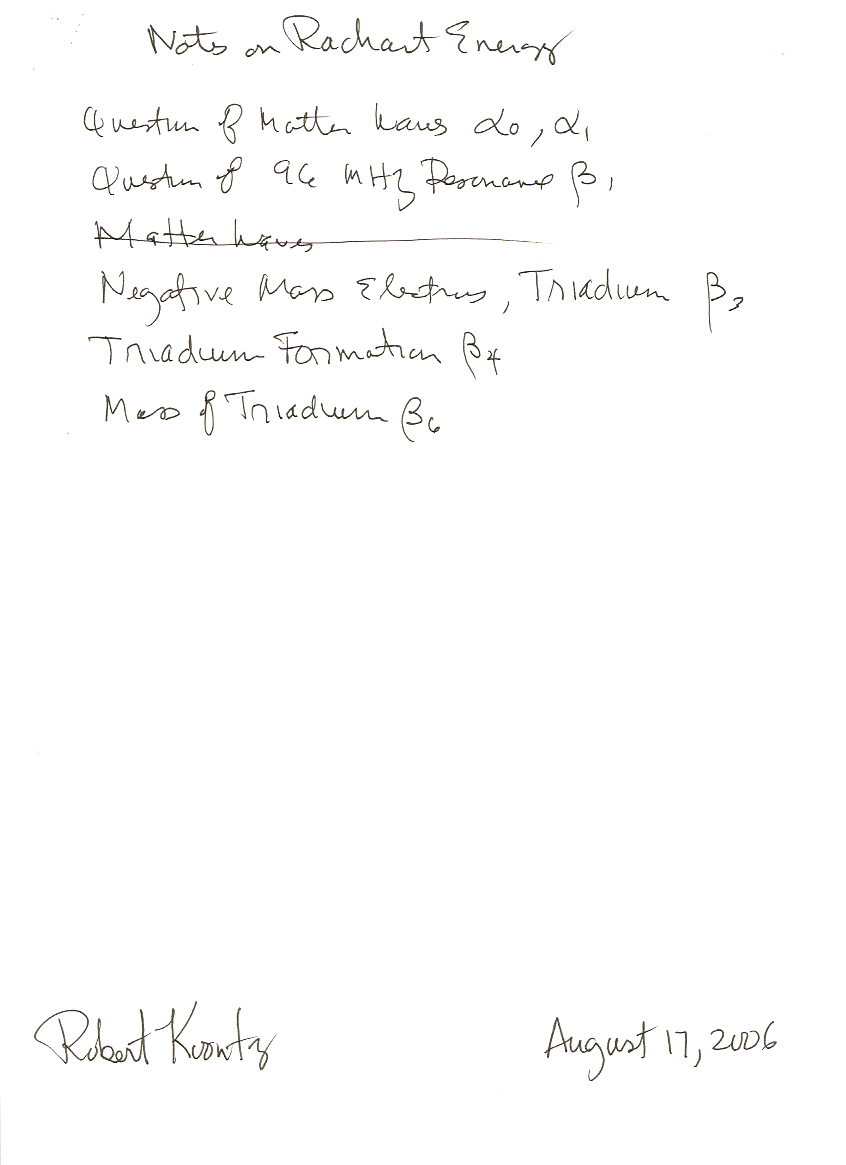 Notes on Radiant Energy
Question of Matter Waves α0, α1
Question of 96 MHz Resonance β1
Matter Waves
Negative Mass Electrons, Triadium β3
Triadium Formation β4
Mass of Triadium β6
Robert Koontz
August 17, 2006